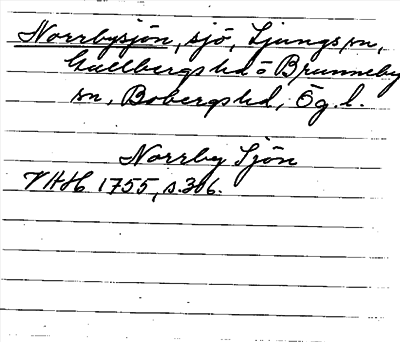 Norrbysjön, sjö, Ljungs sn,
Gullbergs hd o Brunneby
sn, Bobergs hd, Ög. l.
Norrby Sjön
VHH 1755, s. 306.